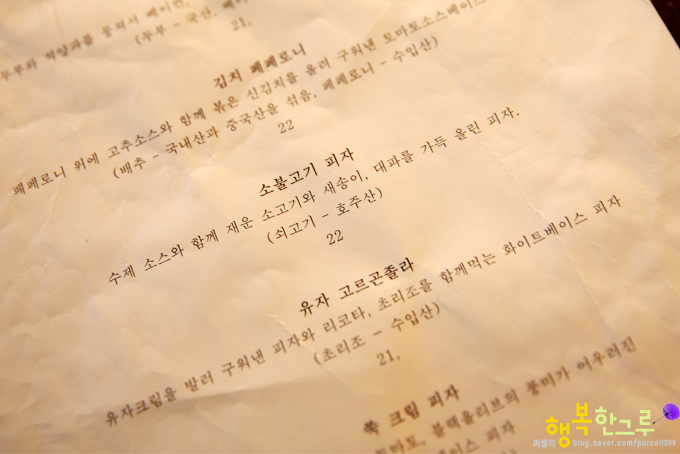 두부와 적양파를 뭉쳐서 베이컨,
(두부 - 국산, 베이
21.
김치 페페로니
페페로니 위에 고추소스와 함께 볶은 신김치를 올려 구워낸 토마토소스베이스
(배추 - 국내산과 중국산을 섞음, 페페로니 - 수입산)
22
소불고기 피자
수제 소스와 함께 재운 소고기와 새송이, 대파를 가득 올린 피자.
(쇠고기 - 호주산)
22
유자 고르곤졸라
유자크림을 발러 구워낸 피자와 리코타, 초리조를 함께먹는 화이트베이스 피자
(초리조 - 수입산)
21.
쑥 크림 피자
토마토, 블랙올리브의 풍미가 어우러진
베이스 피자
행복한그루
퍼셀의 blog.naver.com/purcell309